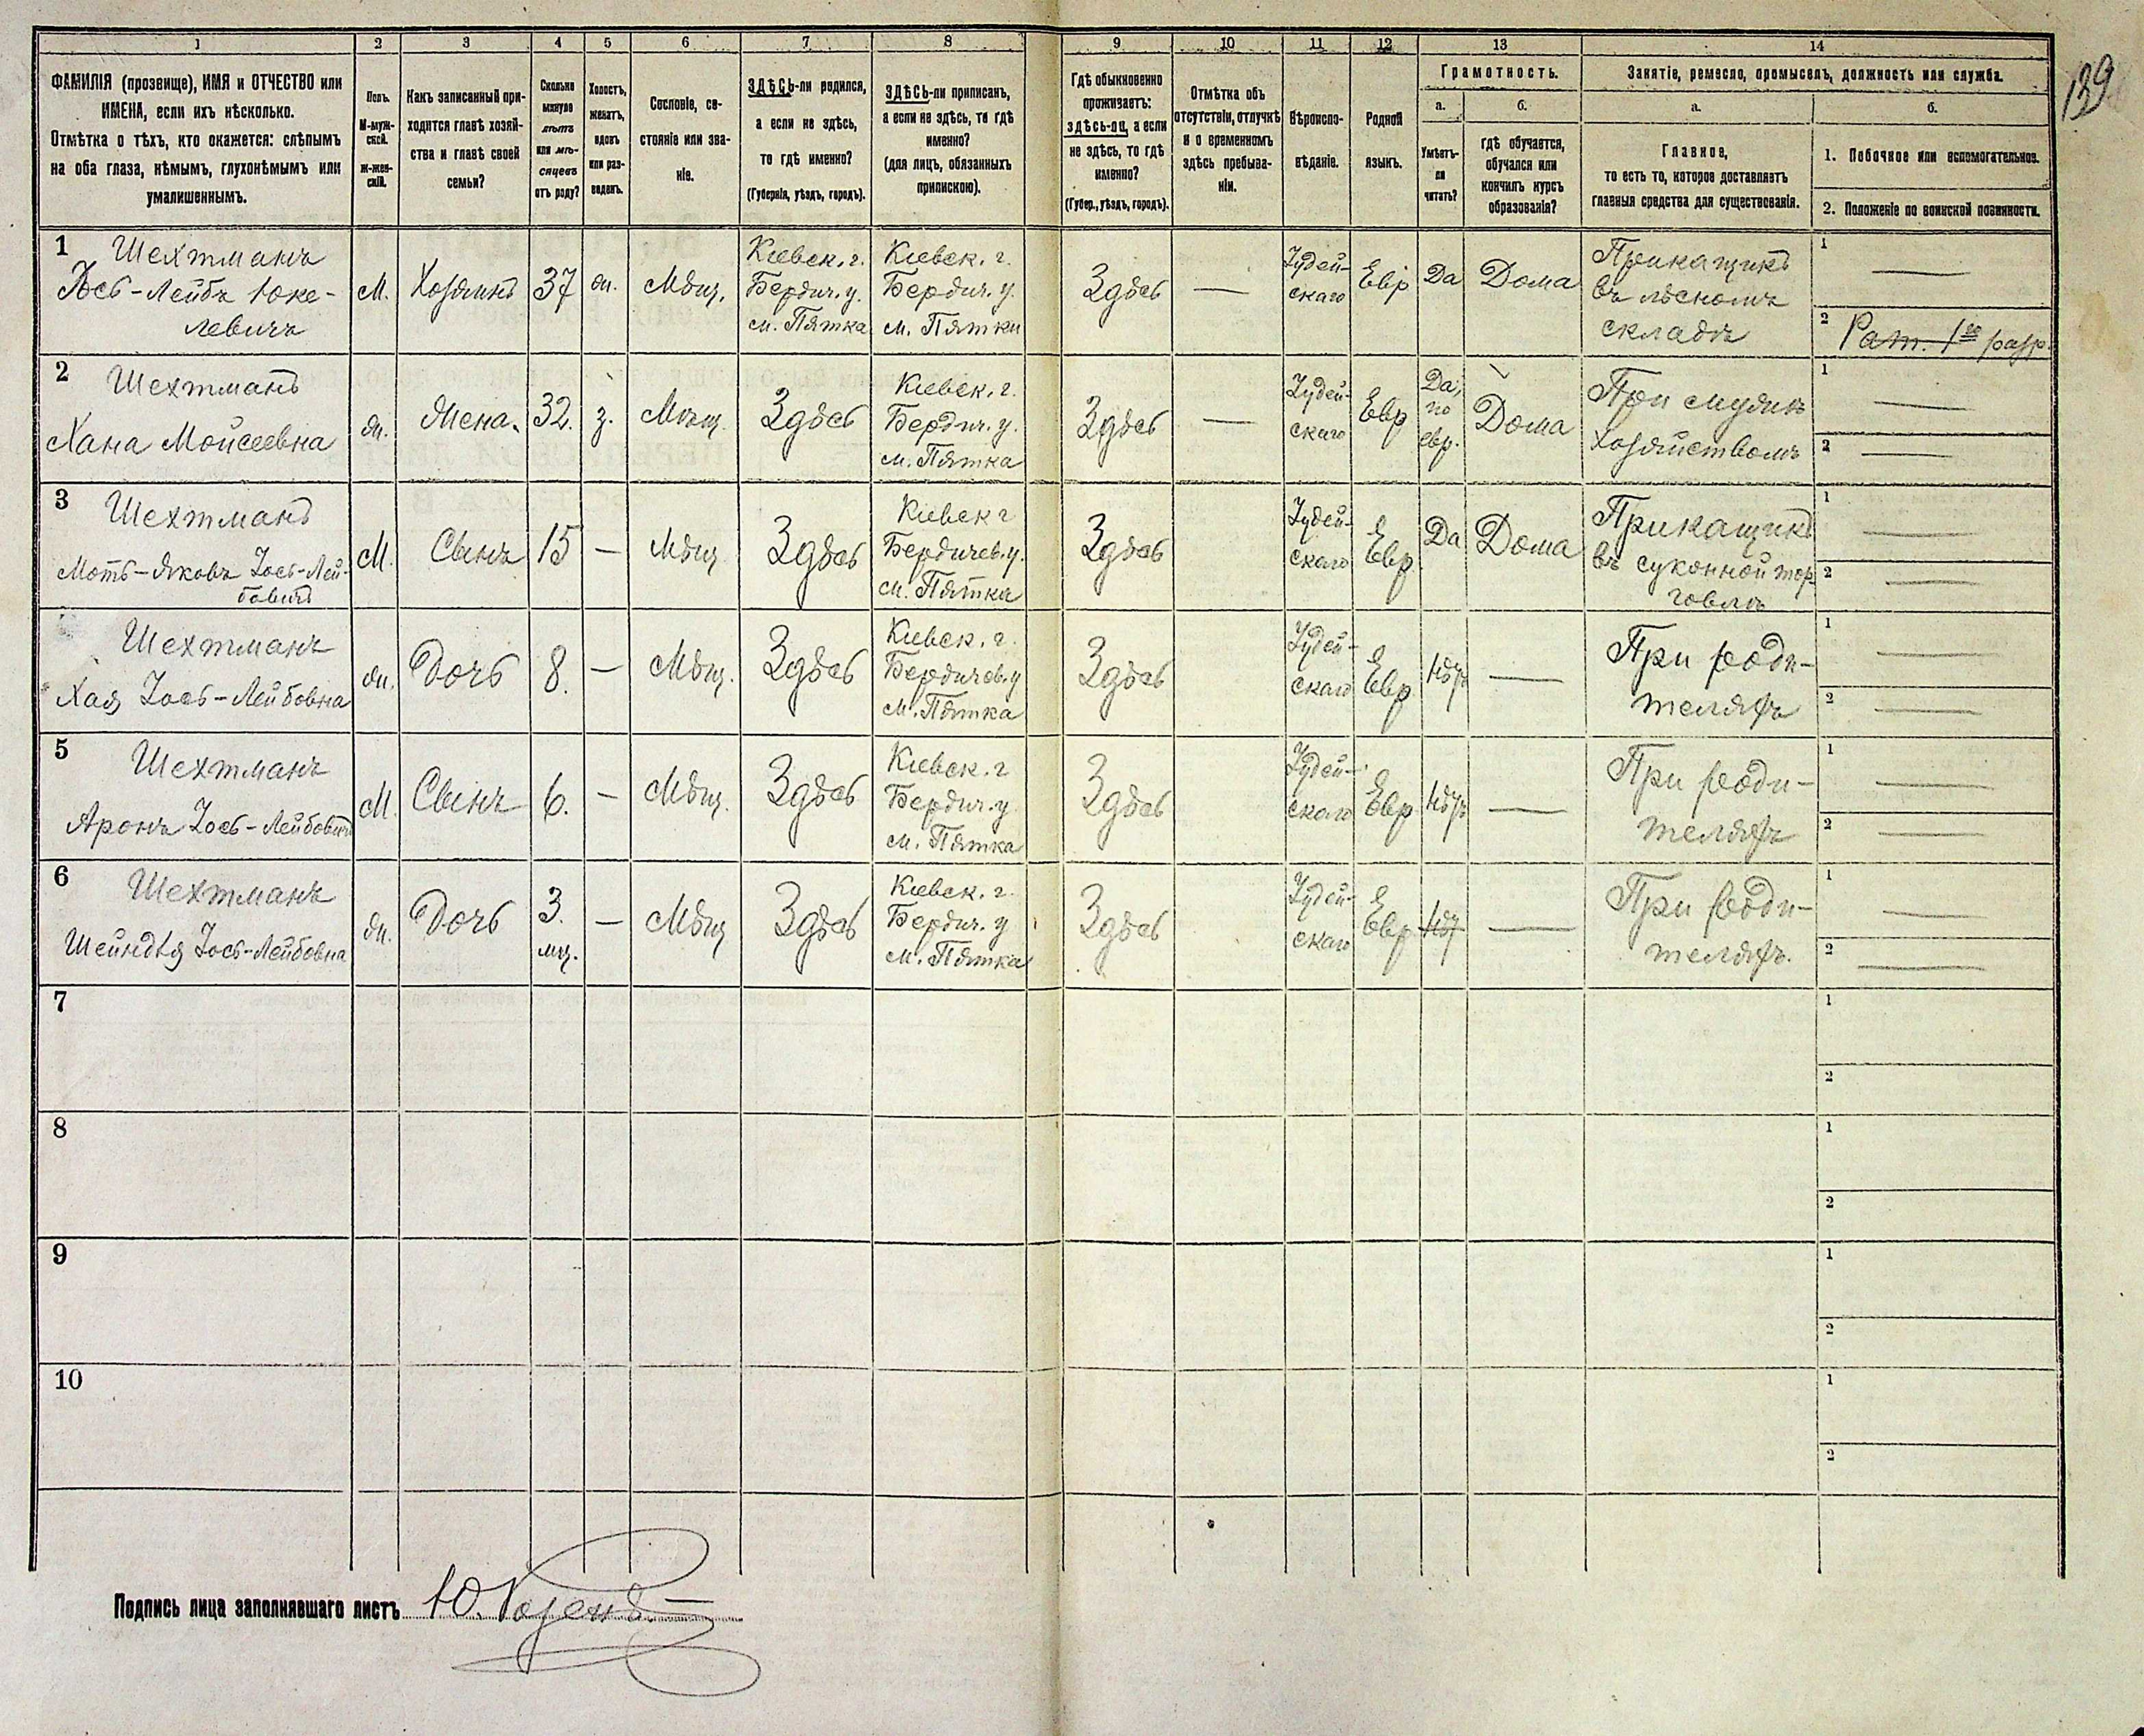 1 2 3 4 5 6 7 8 9 10 11 12 13 14
139
ФАМИЛІЯ (прозвище), ИМЯ и ОТЧЕСТВО или
ИМЕНА, если ихъ нѣсколько.
Отмѣтка о тѣхъ, кто окажется: слѣпымъ
на оба глаза, нѣмымъ, глухонѣмымъ или
умалишеннымъ.
Полъ.
М-муж-
ской.
Ж-жен-
скій.
Какъ записанный при-
ходится главѣ хозяй-
ства и главѣ своей
семьи?
Сколько
минуло
лѣтъ
или мѣ-
сяцевъ
отъ роду?
Холостъ,
женатъ,
вдовъ
или раз-
веденъ.
Сословіе, со-
стояніе или зва-
ніе.
ЗДѢСЬ-ли родился,
а если не здѣсь,
то гдѣ именно?
(Губернія, уѣздъ, городъ).
ЗДѢСЬ-ли приписанъ,
а если не здѣсь, то гдѣ
именно?
(для лицъ, обязанныхъ
припискою).
Гдѣ обыкновенно
проживаетъ:
здѣсь-ли, а если
не здѣсь, то гдѣ
именно?
(Губер., уѣздъ, городъ).
Отмѣтка объ
отсутствіи, отлучкѣ
и о временномъ
здѣсь пребыва-
ніи.
Вѣроиспо-
вѣданіе.
Родной
языкъ.
Грамотность.
а.
Умѣетъ-
ли
читать?
б.
гдѣ обучается,
обучался или
кончилъ курсъ
образованія?
Занятіе, ремесло, промыселъ, должность или служба.
а.
Главное,
то есть то, которое доставляетъ
главныя средства для существованія.
б.
1. Побочное или вспомогательное.
2. Положеніе по воинской повинности.
1
Шехтманъ
Іось-Лейбъ Юке-
левичъ
М.
Хозяинъ
37
ж.
Мѣщ.
Кіевск. г.
Бердич. у.
м. Пятка
Кіевск. г.
Бердич. у.
м. Пятки
Здѣсь
—
Іудей-
скаго
Евр
Да
Дома
Прикащикъ
въ лѣсномъ
складѣ
1 —
2 Рат. 1го разр.
2
Шехтманъ
Хана Мойсеевна
ж.
Жена.
32.
з.
Мѣщ.
Здѣсь
Кіевск. г.
Бердич. у.
м. Пятка
Здѣсь
—
Іудей-
скаго
Евр
Да,
по
евр.
Дома
При мужнѣ
хозяйствомъ
1 —
2 —
3
Шехтманъ
Моть-Яковъ Іось-Лей-
бовичъ
М.
Сынъ
15
—
Мѣщ
Здѣсь
Кіевск г
Бердичев. у.
м. Пятка
Здѣсь
Іудей-
скаго
Евр.
Да
Дома
Прикащикъ
въ суконной тор-
говлѣ
1 —
2 —
Шехтманъ
Хая Іось-Лейбовна
ж.
Дочь
8.
—
Мѣщ.
Здѣсь
Кіевск. г.
Бердичев. у
м. Пятка
Здѣсь
Іудей-
скаго
Евр
Нѣтъ
—
При роди-
теляхъ
1 —
2 —
5
Шехтманъ
Аронъ Іось-Лейбовичъ
М.
Сынъ
6.
—
Мѣщ.
Здѣсь
Кіевск. г
Бердич. у
м. Пятка
Здѣсь
Іудей-
скаго
Евр
Нѣтъ
—
При роди-
теляхъ
1 —
2 —
6
Шехтманъ
Шейндля Іось-Лейбовна
ж.
Дочь
3.
мц.
—
Мѣщ
Здѣсь
Кіевск. г.
Бердич. у
м. Пятка
Здѣсь
Іудей-
скаго
Евр
—
При роди-
теляхъ.
1 —
2 —
7
1
2
8
1
2
9
1
2
10
1
2
Подпись лица заполнявшаго листъ Ю. Розенъ